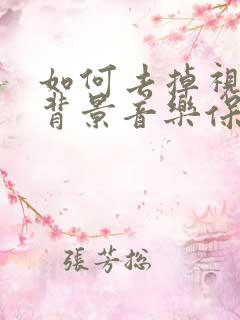 如何去掉視
背景音樂保
張芳總